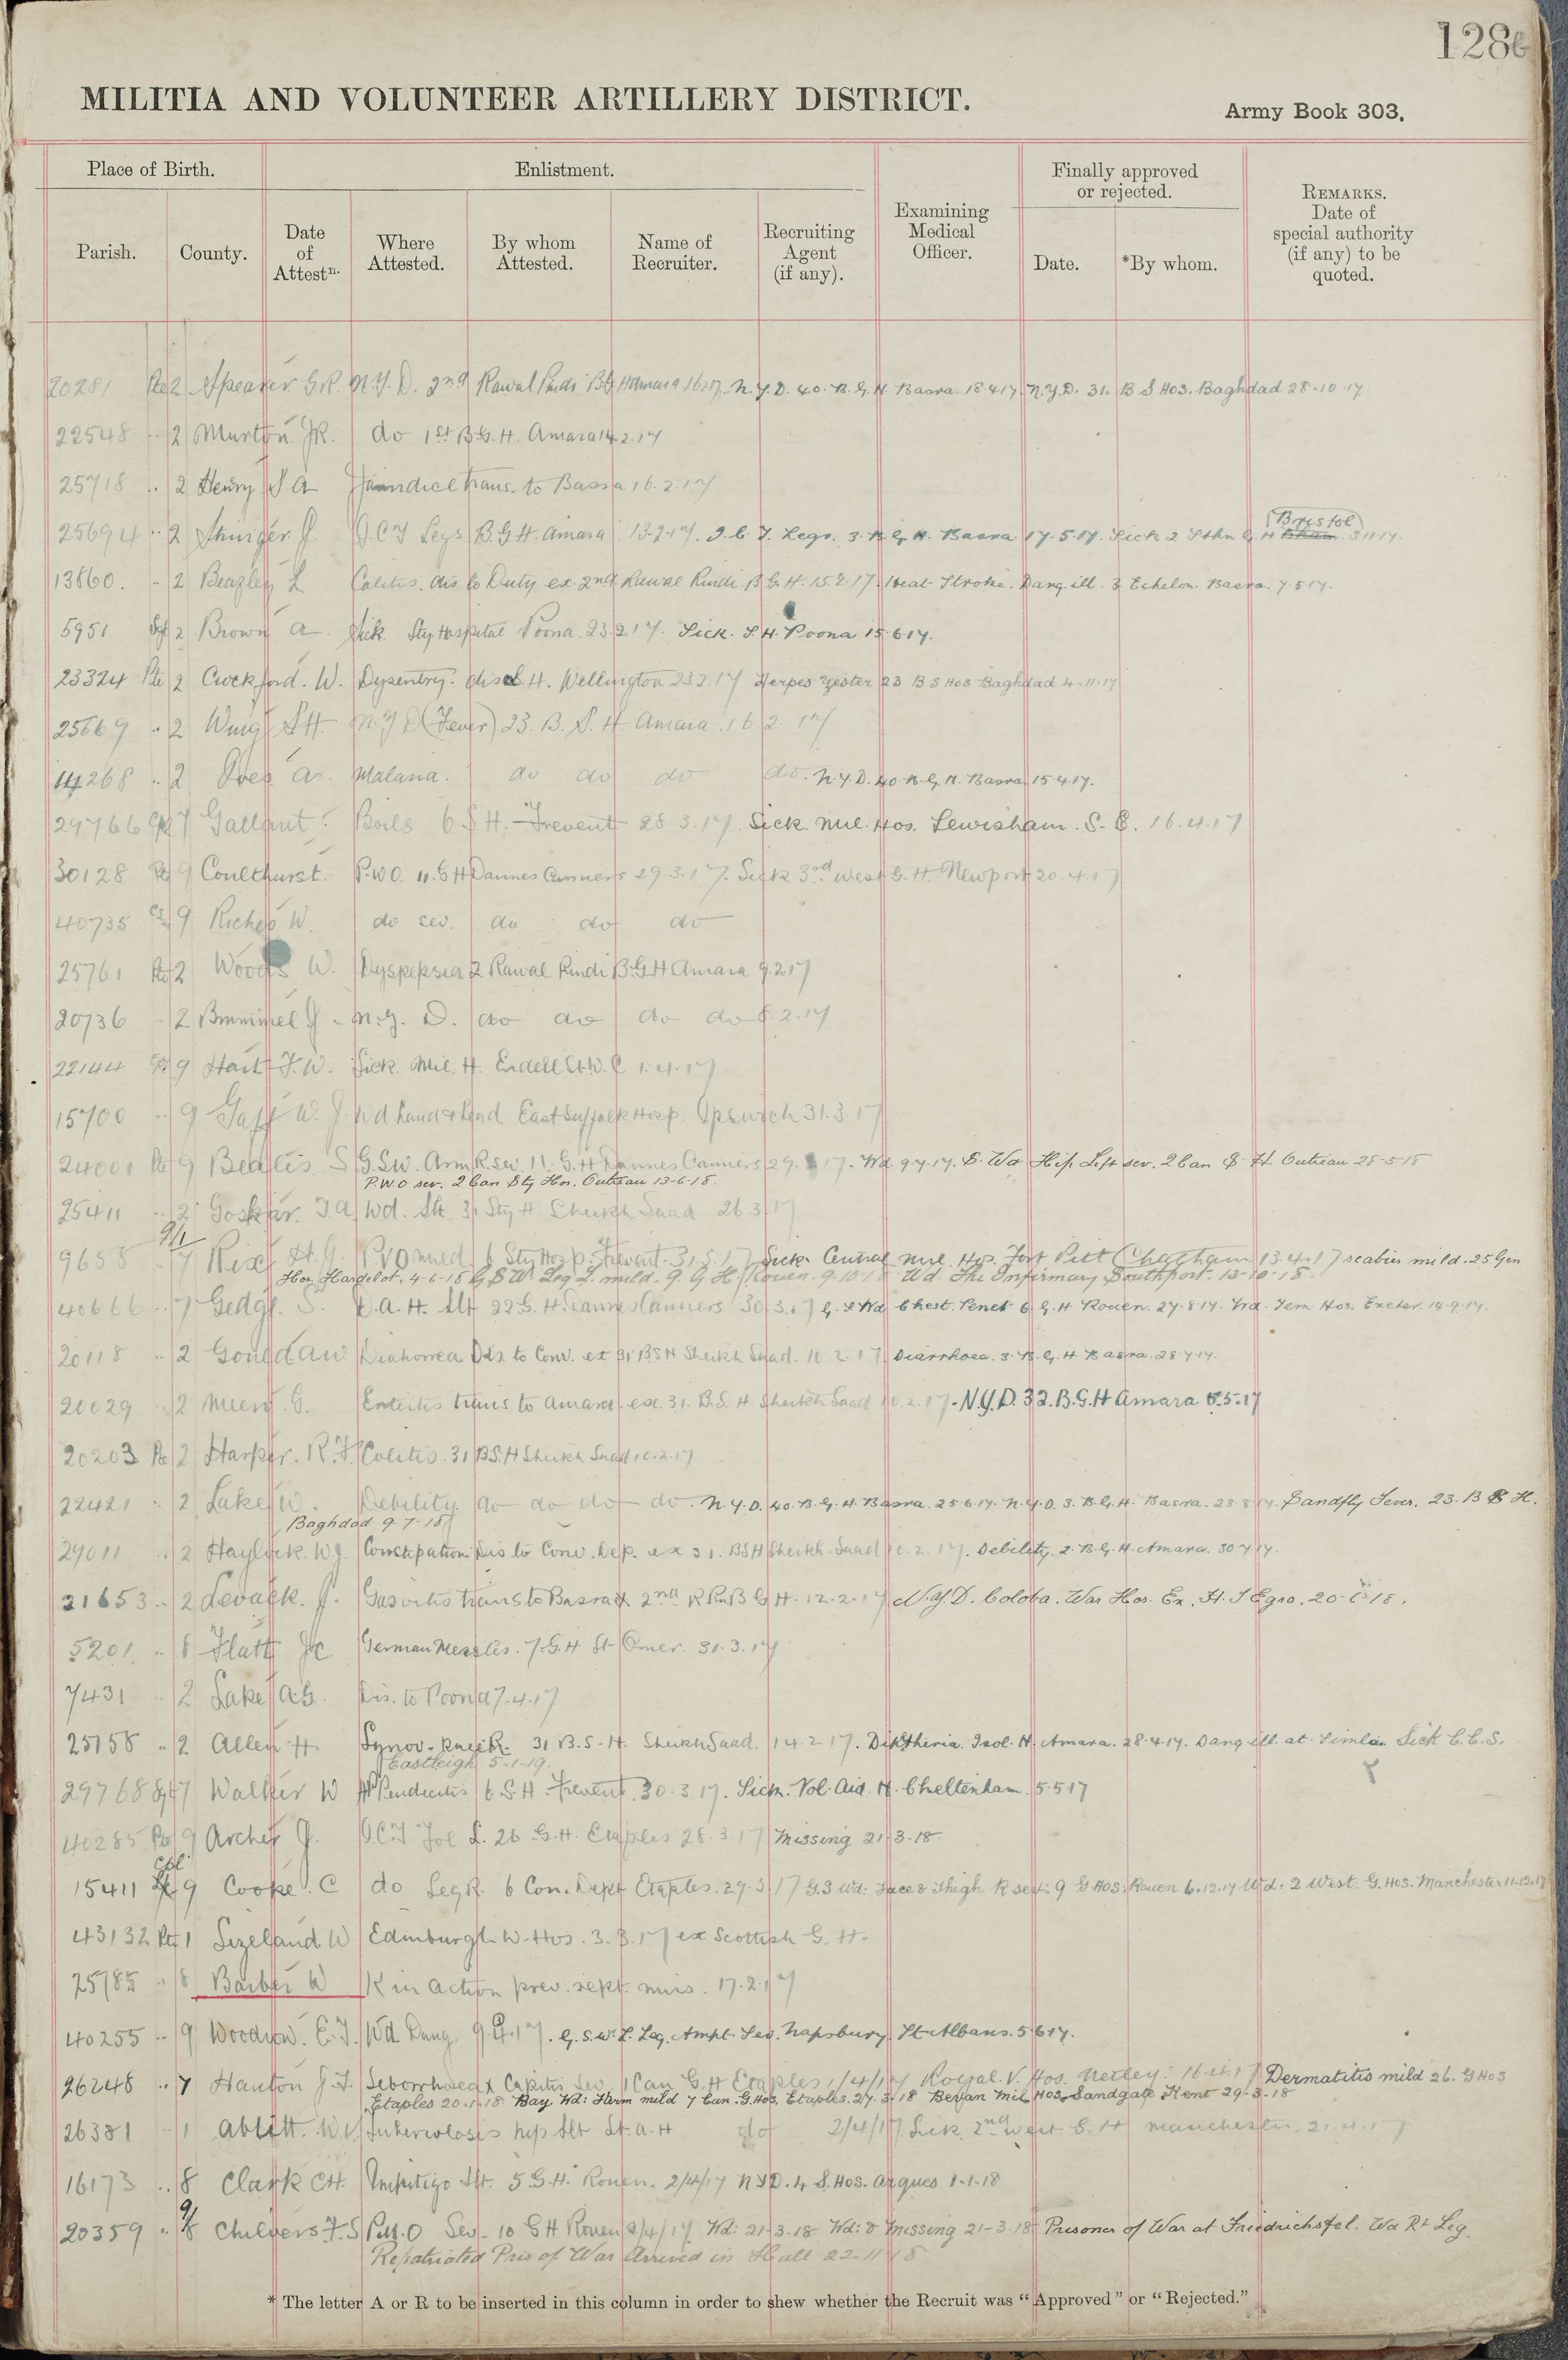 128
MILITIA AND VOLUNTEER ARTILLERY DISTRICT.
Army Book 303.
Place of Birth.
Enlistment.
Finally approved or rejected.
Parish.
County.
Date of Attestn.
Where Attested.
By whom Attested.
Name of Recruiter.
Recruiting Agent (if any).
Examining Medical Officer.
Date.
*By whom.
REMARKS. Date of special authority (if any) to be quoted.
20281 Pte 2 Spearer G.R. N.Y.D. 2nd Rawal Pindi B.G.H. Amara N.Y.D. 40. B.G.H. Basra 18.4.17. N.Y.D. 31. B S Hos. Baghdad 28.10.17
22548 .. 2 Murton J.R. do 1st B.G.H. Amara 14.2.17
25718 .. 2 Henry S A Jaundice trans. to Basra 16.2.17
25694 .. 2 Stringer J. I.C.T Legs B.G.H. Amara 13.2.17. I.C.T. Legs. 3. B.G.H. Basra 17.5.17. Sick 2 Sthn G H Bristol 3.11.17.
13860. .. 2 Beagley L Colitis. dis to Duty ex. 2nd Rawal Pindi B.G.H. 15.2.17. Heat Stroke. Dang. ill. 3 Echelon. Basra. 7.5.17.
5951 Sgt 2 Brown A Sick. Sty Hospital Poona. 23.2.17. Sick. S.H. Poona 15.6.17.
23324 Pte 2 Crockford. W. Dysentry. disc S.H. Wellington 23.2.17 Herpes Zester 23 B S Hos Baghdad 4-11-17
25669 .. 2 Wing S H. N.Y.D (Fever) 23. B. S. H. Amara. 16.2.17
14268 .. 2 Ives A. Malaria. do do do do. N.Y.D. 40. B.G.H. Basra 15.4.17.
29766 Cpl 7 Gallant. Boils 6 S.H. Frevent 28.3.17. Sick. Mil. Hos. Lewisham. S.E. 16.4.17
30128 Pte 9 Coulthurst. P.U.O. 11. G H Dannes Camiers 29.3.17. Sick 3rd West G.H. Newport 20.4.17
40735 9 Riches W. do sev. do do do
25761 Pte 2 Woods W. Dyspepsia 2 Rawal Pindi B.G.H Amara 9.2.17
20736 .. 2 Brummel J. N.Y.D. do do do do 8.2.17
22144 9 Hart F.W. Sick. Mil. H. Endell St. W.C 1.4.17
15700 .. 9 Gaff W.J. Wd hand & head East Suffolk Hosp. Ipswich 31.3.17
24001 Pte 9 Beales S G.S.W. Arm R. sev. 11. G.H Dannes Camiers 29.3.17. Wd 9.4.17. S. Wd Hip Left sev. 2 Can S. H Outreau 28-5-18
P.U.O sev. 2 Can Sty Hos. Outreau 13-6-18.
25411 .. 2 Goskar. J.A Wd. Slt 31 Sty H Sheikh Saad 26.3.17
9658 .. 9/1 7 Rix H.G. P.U.O mild 6 Sty Hosp. Frevent. 31.3.17 Sick. Central Mil. Hos. Fort Pitt Chatham 13.4.17 scabies mild. 25 Gen
Hos Hardelot. 4-6-18 G.S.W. Leg L. mild. 9. G H Rouen. 9.10.18 Wd The Infirmary Southport. 13-10-18.
40666 .. 7 Gedge. S. D.A.H. Slt 22 G.H. Dannes Camiers 30.3.17 G.S Wd Chest. Penet 6. G.H Rouen. 27.8.17. Wd. Tem Hos. Exeter. 14.9.17.
20118 .. 2 Gould A W Diahorrea Dis to Conv. ex 31 B S H Sheikh Saad. 10.2.17 Diarrhoea. 3. B.G.H Basra. 28.7.17.
20029 .. 2 Meen. G. Enteritis trans to Amara ex. 31. B.S. H Sheikh Saad 10.2.17. N.Y.D. 32. B.G.H Amara 5.5.17
20203 Pte 2 Harper. R.F. Colitis. 31 B.S.H Sheikh Saad 10.2.17
22421 .. 2 Lake W. Debility. do do do do. N.Y.D. 40. B.G.H. Basra. 25.6.17. N.Y.D. 3. B.G.H. Basra. 23.8.17. Sandfly Fever. 23. B S H.
Baghdad 9-7-18
29011 .. 2 Haylock W.J. Constipation Dis to Conv. Dep. ex 31. B S H Sheikh Saad 10.2.17. Debility. 2. B.G.H. Amara. 30.7.17.
21653 .. 2 Levack. J. Gasritis trans to Basra ex 2nd R Pin B G H. 12.2.17 N.Y.D. Coloba. War Hos. Ex. H. S Egra. 20-6-18.
5201 .. 8 Flatt J C German Measles. 7. G.H St Omer. 31.3.17
7431 .. 2 Lake A.G. Dis. to Poona 7.4.17
25758 .. 2 Allen H. Synov. Knee R. 31 B.S.H. Sheikh Saad. 14.2.17. Diptheria. Isol. H. Amara. 28.4.17. Dang. ill. at Simla. Sick C.C.S.
Eastleigh 5-1-19.
29768 Sgt 7 Walker W Appendicitis 6 S.H Frevent. 30.3.17. Sick. Vol. Aid. H. Cheltenham. 5.5.17
40285 Pte 9 Archer J. I.C.T Toe L. 26 G.H. Etaples 28.3.17 Missing 21.3.18.
15411 Cpl 9 Cooke. C do Leg R. 6 Con. Dept Etaples. 29.3.17 G.S Wd: Face & Thigh R sev: 9 G Hos: Rouen 6.12.17 Wd. 2 West. G. Hos. Manchester 11.12.17
43132 Pte 1 Sizeland W Edinburgh W. Hos. 3.3.17 ex Scottish G. H.
25785 .. 8 Barber W K in action prev. rept. miss. 17.2.17
40255 .. 9 Woodrow. E.J. Wd Dang. 9.4.17. G.S.W. L. Leg. Ampt. Sev. Napsbury St Albans. 5.6.17.
26248 .. 7 Hanton J.T. Seborrhoea Capitis Sev 1 Can G.H Etaples 1/4/17 Royal V. Hos. Netley. 16.4.17 Dermatitis mild 26. G Hos
Etaples 20.1.18. Bay. Wd: Harm mild 7 Can. G. Hos. Etaples. 27.3.18 Bevan Mil Hos. Sandgate Kent 29.3.18
26381 .. 1 Ablett. W. Tuberculosis hip Slt St. A. H do 2/4/17 Sick. 2nd West G. H Manchester. 21.4.17
16173 .. 8 Clark C.H. Impitigo Slt. 5 G.H. Rouen. 2/4/17 N Y D. 4 S. Hos. Arques 1-1-18
20359 .. 9/8 Chilvers F.S P.U.O Sev. 10 G H Rouen 2/4/17 Wd: 21-3-18 Wd: & Missing 21-3-18 Prisoner of War at Friedrichsfel. Wd Rt Leg.
Repatriated Pris of War Arrived in Hull 22-11-18
* The letter A or R to be inserted in this column in order to shew whether the Recruit was "Approved" or "Rejected."